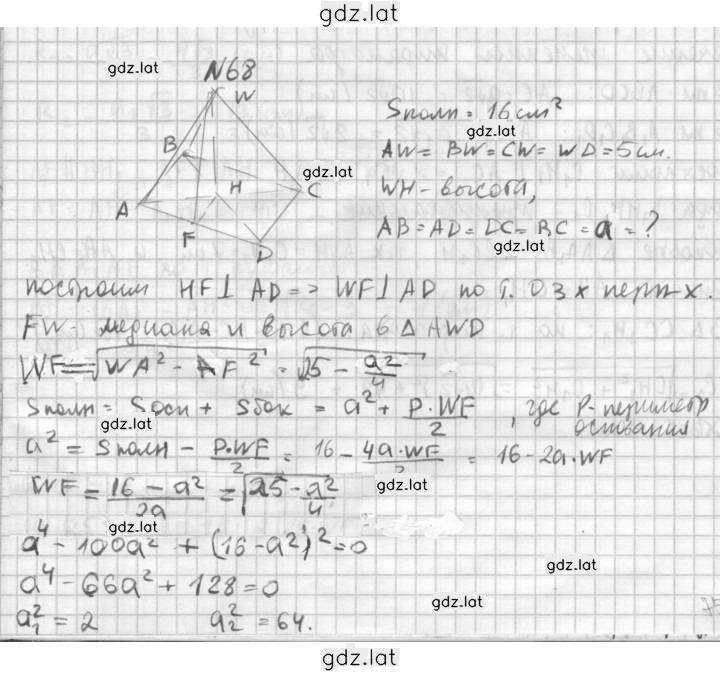 gdz.lat
gdz.lat
N68
W
B
H
C
A
F
D
gdz.lat
Sполн = 16 см²
gdz.lat
AW = BW = CW = WD = 5 см.
WH - высота,
AB = AD = DC = BC = a = ?
gdz.lat
построим HF ⊥ AD => WF ⊥ AD по т. о 3х перп-х.
FW - медиана и высота в Δ AWD
WF = √(WA² - AF²) = √(25 - a²/4)
Sполн = Sосн + Sбок = a² + P·WF/2, где P-периметр основания
gdz.lat
a² = Sполн - P·WF/2 = 16 - 4a·WF/2 = 16 - 2a·WF
WF = (16 - a²)/2a = √(25 - a²/4)
gdz.lat
gdz.lat
a⁴ - 100a² + (16 - a²)² = 0
gdz.lat
a⁴ - 66a² + 128 = 0
gdz.lat
a₁² = 2 a₂² = 64.
gdz.lat